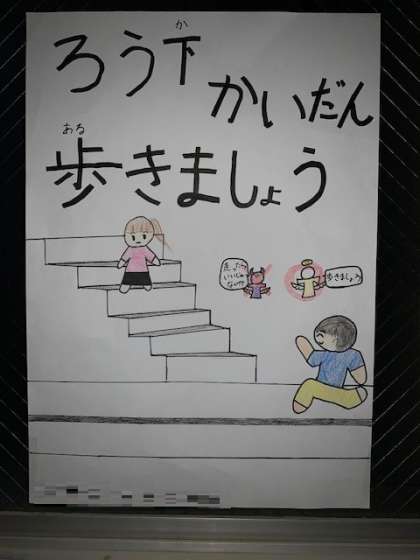 ろう下
か
かいだん
歩きましょう
ある
走った方が
いいじゃ
ない?
歩きましょう